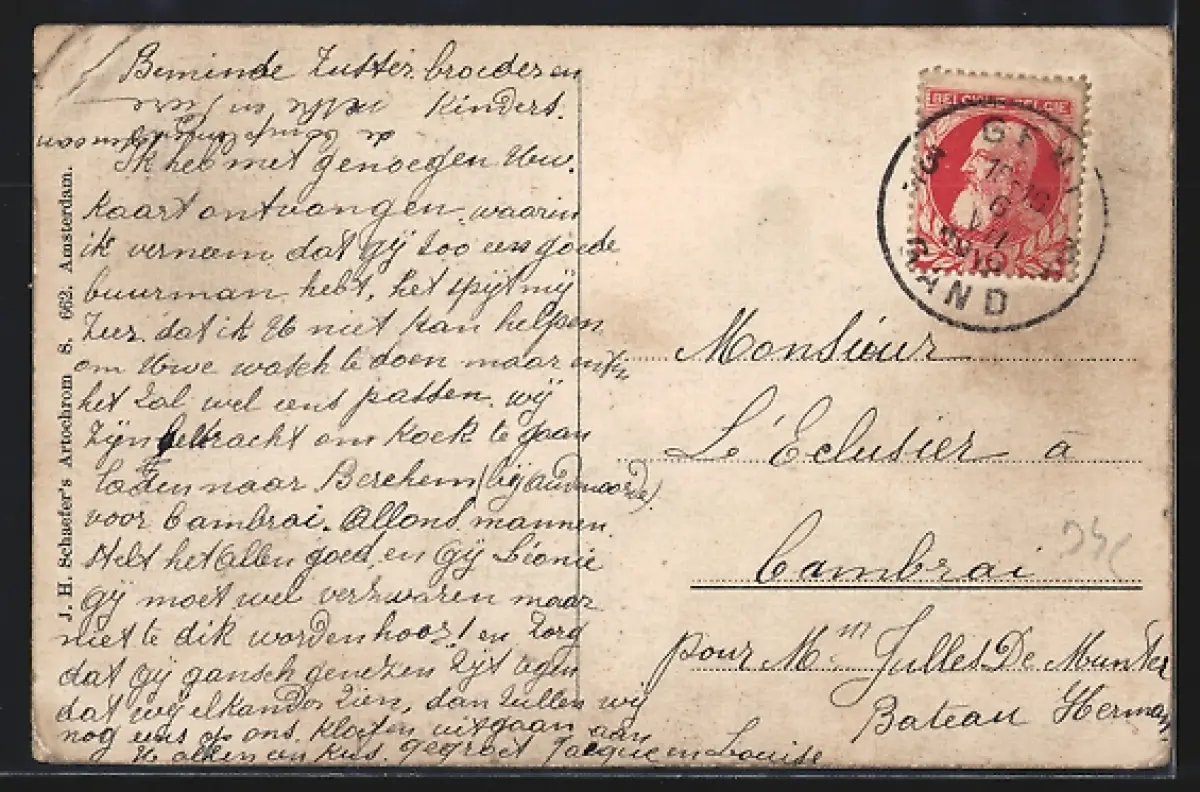 Beminde Zuster broeder en
Kinders.
Ik heb met genoegen Uw.
Kaart ontvangen, waarin
ik verneem dat gij zoo eens goede
buurman hebt, het spijt mij
zeer dat ik U niet kan helpen
om Uwe wasch te doen maar
het zal wel eens passen. wij
zijn bevracht om Koek te gaan
laden naar Berchem (bij Audenaarde)
voor Cambrai. Allons mannen
Stelt het Allen goed, en Gij Léonie
gij moet wel verzwaren maar
niet te dik worden hoor! en zorg
dat gij gansch genezen zijt tegen
dat wij elkander zien, dan zullen wij
nog eens op ons Kloften uitgaan aan
U allen een kus. gegroet Jacque en Louise
J. H. Schaefer's Artochrom S. 662. Amsterdam.
BELGIQUE BELGIE
GENT
GAND
10
Monsieur
L'Eclusier à
Cambrai
pour Mr Julles De Munter
Bateau Herman